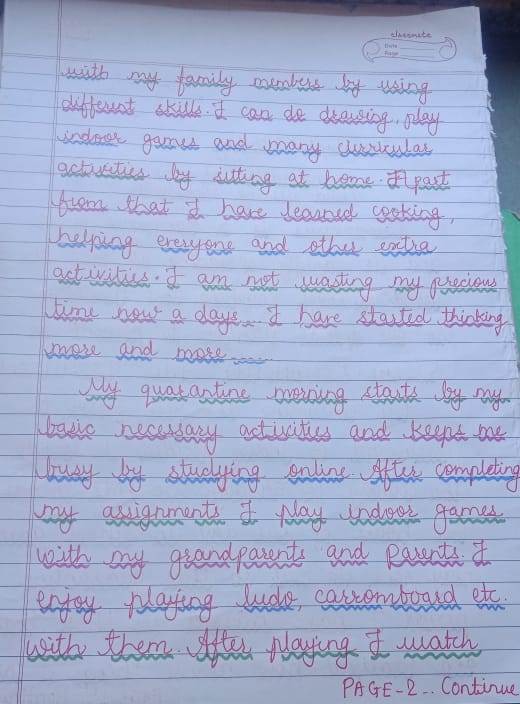 classmate
Date
Page
with my family members by using
different skills. I can do drawing, play
indoor games and many curricular
activities by sitting at home. Apart
from that I have learned cooking,
helping everyone and other extra
activities. I am not wasting my precious
time now a days. I have started thinking
more and more......
My quarantine morning starts by my
basic necessary activities and keeps me
busy by studying online. After completing
my assignments I play indoor games
with my grandparents and parents. I
enjoy playing ludo, carromboard etc.
with them. After playing I watch
PAGE-2.. Continue